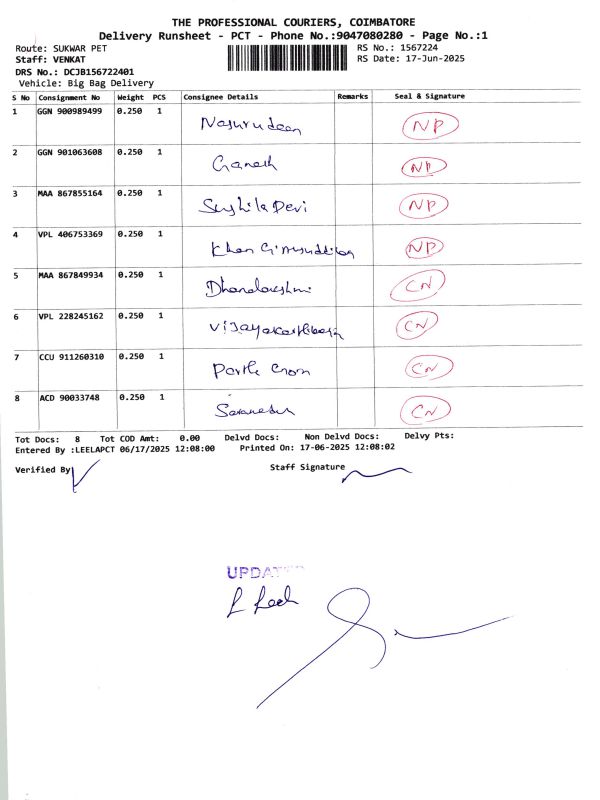 THE PROFESSIONAL COURIERS, COIMBATORE
Delivery Runsheet - PCT - Phone No.:9047080280 - Page No.:1
Route: SUKWAR PET RS No.: 1567224
Staff: VENKAT RS Date: 17-Jun-2025
DRS No.: DCJB156722401
Vehicle: Big Bag Delivery
S No Consignment No Weight PCS Consignee Details Remarks Seal & Signature
1 GGN 900989499 0.250 1 Nasurudeen NP
2 GGN 901063608 0.250 1 Ganesh NP
3 MAA 867855164 0.250 1 Sushila Devi NP
4 VPL 406753369 0.250 1 Khan NP
5 MAA 867849934 0.250 1 Dhanalakshmi CN
6 VPL 228245162 0.250 1 CN
7 CCU 911260310 0.250 1 CN
8 ACD 90033748 0.250 1 CN
Tot Docs: 8 Tot COD Amt: 0.00 Delvd Docs: Non Delvd Docs: Delvy Pts:
Entered By :LEELAPCT 06/17/2025 12:08:00 Printed On: 17-06-2025 12:08:02
Verified By Staff Signature
UPDATED